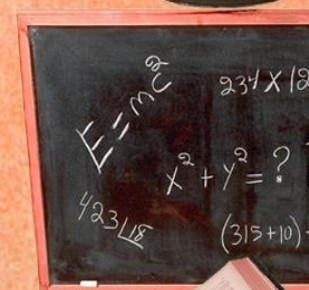 E=mc²
234 X 12
x² + y² = ?
423 ⌊18
(315+10)